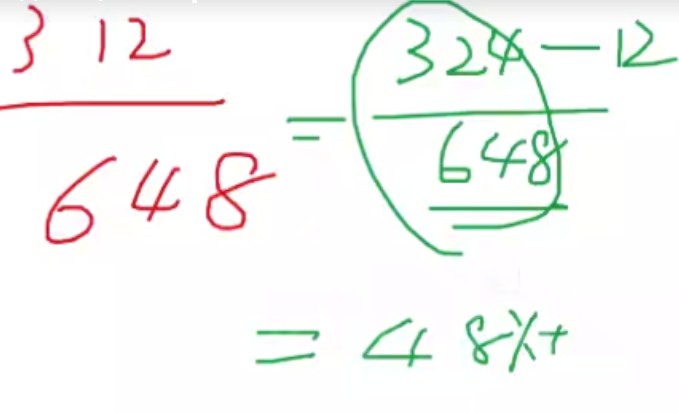 312/648 = (324-12)/648
= 48%+